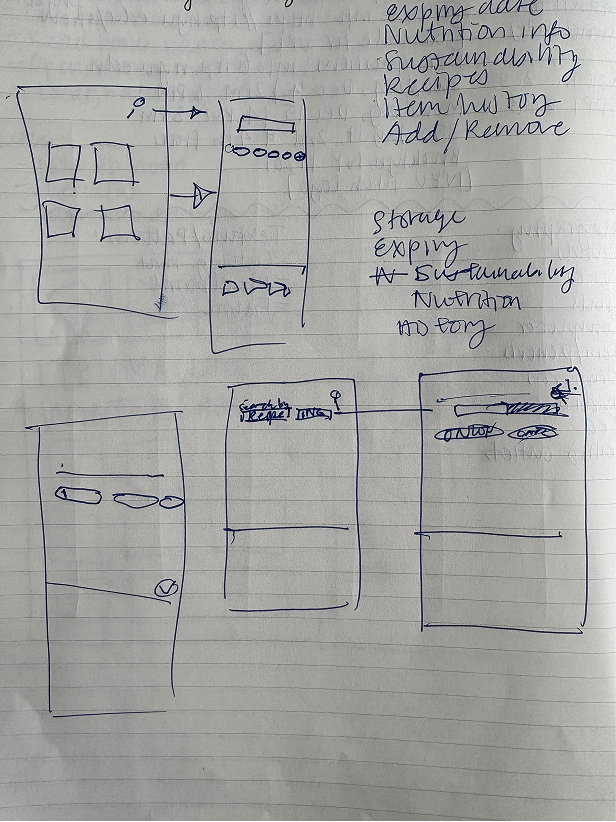 Expiry date
Nutrition info
Sustainability
Recipes
Item history
Add/Remove
Storage
Expiry
Sustainability
Nutrition
History
Search by
Recipe ING
ONION